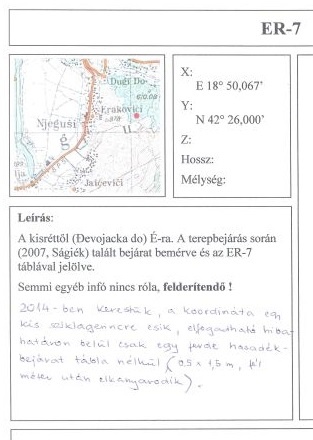 ER-7
Dugi Do
Erakovići
Njeguši
Jaićevići
X:
E 18° 50,067’
Y:
N 42° 26,000’
Z:
Hossz:
Mélység:
Leírás:
A kisréttől (Đevojacka do) É-ra. A terepbejárás során
(2007, Ságiék) talált bejárat bemérve és az ER-7
táblával jelölve.
Semmi egyéb infó nincs róla, felderítendő !
2014-ben kerestük, a koordináta egy
kis sziklagerincre esik, elfogadható hiba-
határon belül csak egy ferde hasadék-
bejárat tábla nélkül (0,5 x 1,5 m, fél
méter után elkanyarodik).